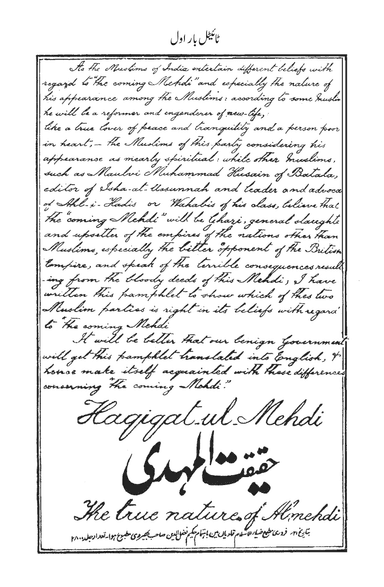 ٹائیٹل بار اول
As the Muslims of India entertain different beliefs with
regard to "the coming Mehdi" and especially the nature of
his appearance among the Muslims: according to some Muslims
he will be a reformer and engenderer of new life,
like a true lover of peace and tranquility and a person poor
in heart;— the Muslims of this party considering his
appearance as mearly spiritual: while other Muslims,
such as Maulvi Muhammad Husain of Batala,
editor of Isha-at-Ussunnah and leader and advocate
of Ahl-i-Hadis or Wahabis of his class, believe that
the "coming Mehdi" will be Ghazi, general slaughterer
and upsetter of the empires of the nations other than
Muslims, especially the bitter opponent of the British
Empire, and speak of the terrible consequences result
-ing from the bloody deeds of this Mehdi; I have
written this pamphlet to show which of thes two
Muslim parties is right in its beliefs with regard
to "the coming Mehdi"
It will be better that our benign Government
will get this pamphlet translated into English, &
hence make itself acquainted with these differences
concerning "the coming Mehdi."
Haqiqat-ul-Mehdi
حقیقت المہدی
The true nature of Al-mehdi